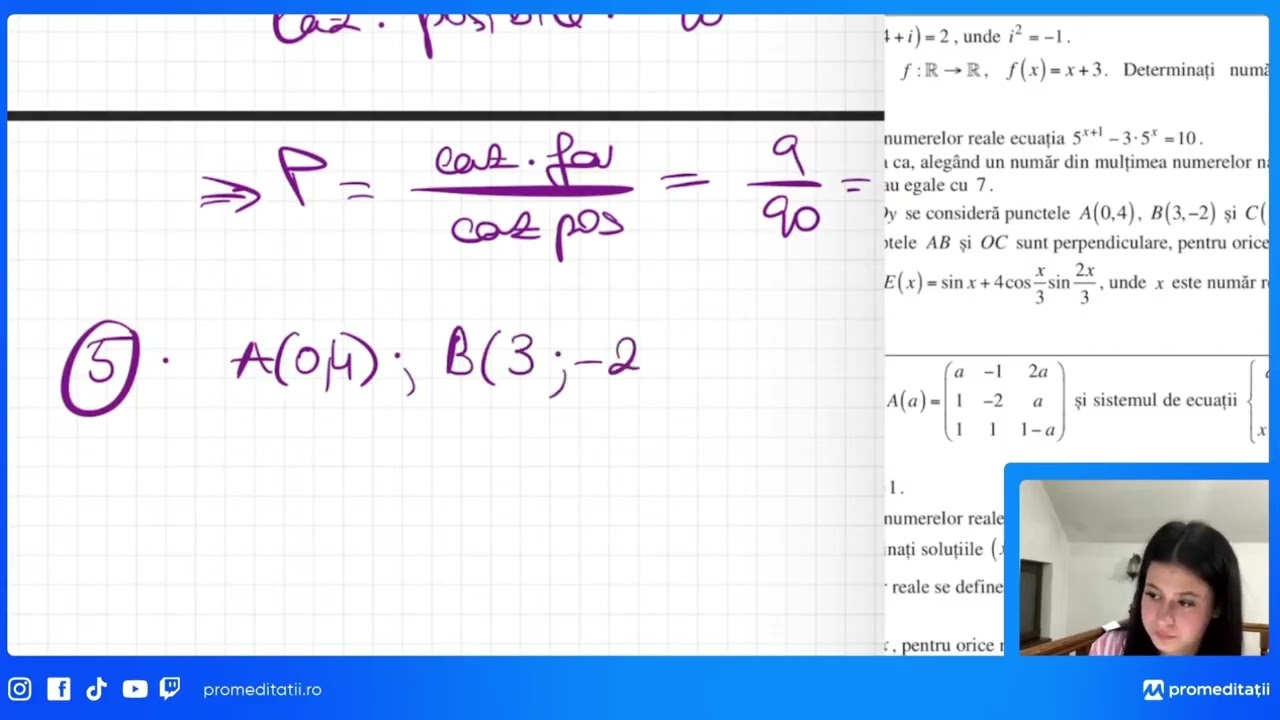 caz. posibile
⇒ P = caz. fav / caz pos = 9/90 =
5. A(0,4); B(3;-2
4+i)=2, unde i² = −1.
f : ℝ → ℝ, f(x) = x+3. Determinați numă
numerelor reale ecuația 5^{x+1} − 3·5^x = 10.
ca, alegând un număr din mulțimea numerelor na
au egale cu 7.
Oy se consideră punctele A(0,4), B(3,−2) și C(
ptele AB și OC sunt perpendiculare, pentru orice
E(x) = sin x + 4cos x/3 sin 2x/3, unde x este număr r
A(a) = (a −1 2a
1 −2 a
1 1 1−a) și sistemul de ecuații {
x
1.
numerelor reale
nați soluțiile (
reale se define
x, pentru orice
promeditatii.ro
promeditații